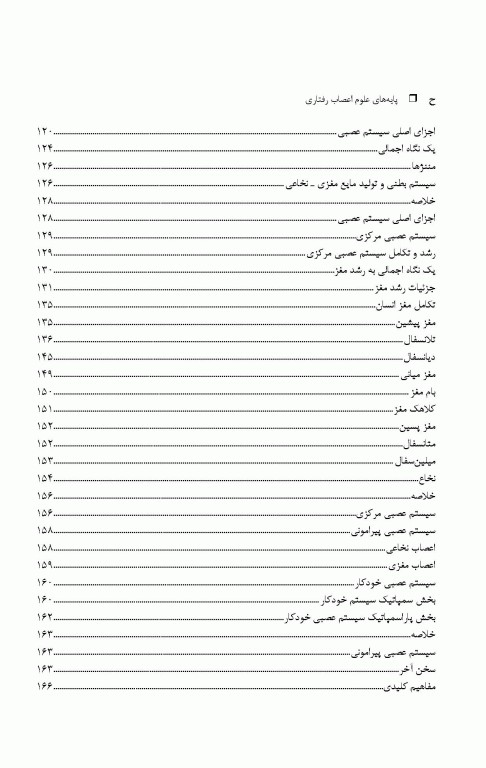 ح ❒ پایه‌های علوم اعصاب رفتاری
اجزای اصلی سیستم عصبی ........ ۱۲۰
یک نگاه اجمالی ........ ۱۲۴
مننژها ........ ۱۲۶
سیستم بطنی و تولید مایع مغزی ـ نخاعی ........ ۱۲۶
خلاصه ........ ۱۲۸
اجزای اصلی سیستم عصبی ........ ۱۲۸
سیستم عصبی مرکزی ........ ۱۲۹
رشد و تکامل سیستم عصبی مرکزی ........ ۱۲۹
یک نگاه اجمالی به رشد مغز ........ ۱۳۰
جزئیات رشد مغز ........ ۱۳۱
تکامل مغز انسان ........ ۱۳۵
مغز پیشین ........ ۱۳۵
تلانسفال ........ ۱۳۶
دیانسفال ........ ۱۴۵
مغز میانی ........ ۱۴۹
بام مغز ........ ۱۵۰
کلاهک مغز ........ ۱۵۱
مغز پسین ........ ۱۵۲
متانسفال ........ ۱۵۲
میلین‌سفال ........ ۱۵۳
نخاع ........ ۱۵۴
خلاصه ........ ۱۵۶
سیستم عصبی مرکزی ........ ۱۵۶
سیستم عصبی پیرامونی ........ ۱۵۸
اعصاب نخاعی ........ ۱۵۸
اعصاب مغزی ........ ۱۵۹
سیستم عصبی خودکار ........ ۱۶۰
بخش سمپاتیک سیستم خودکار ........ ۱۶۰
بخش پاراسمپاتیک سیستم عصبی خودکار ........ ۱۶۲
خلاصه ........ ۱۶۳
سیستم عصبی پیرامونی ........ ۱۶۳
سخن آخر ........ ۱۶۳
مفاهیم کلیدی ........ ۱۶۶